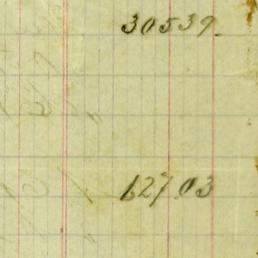 30539
12703